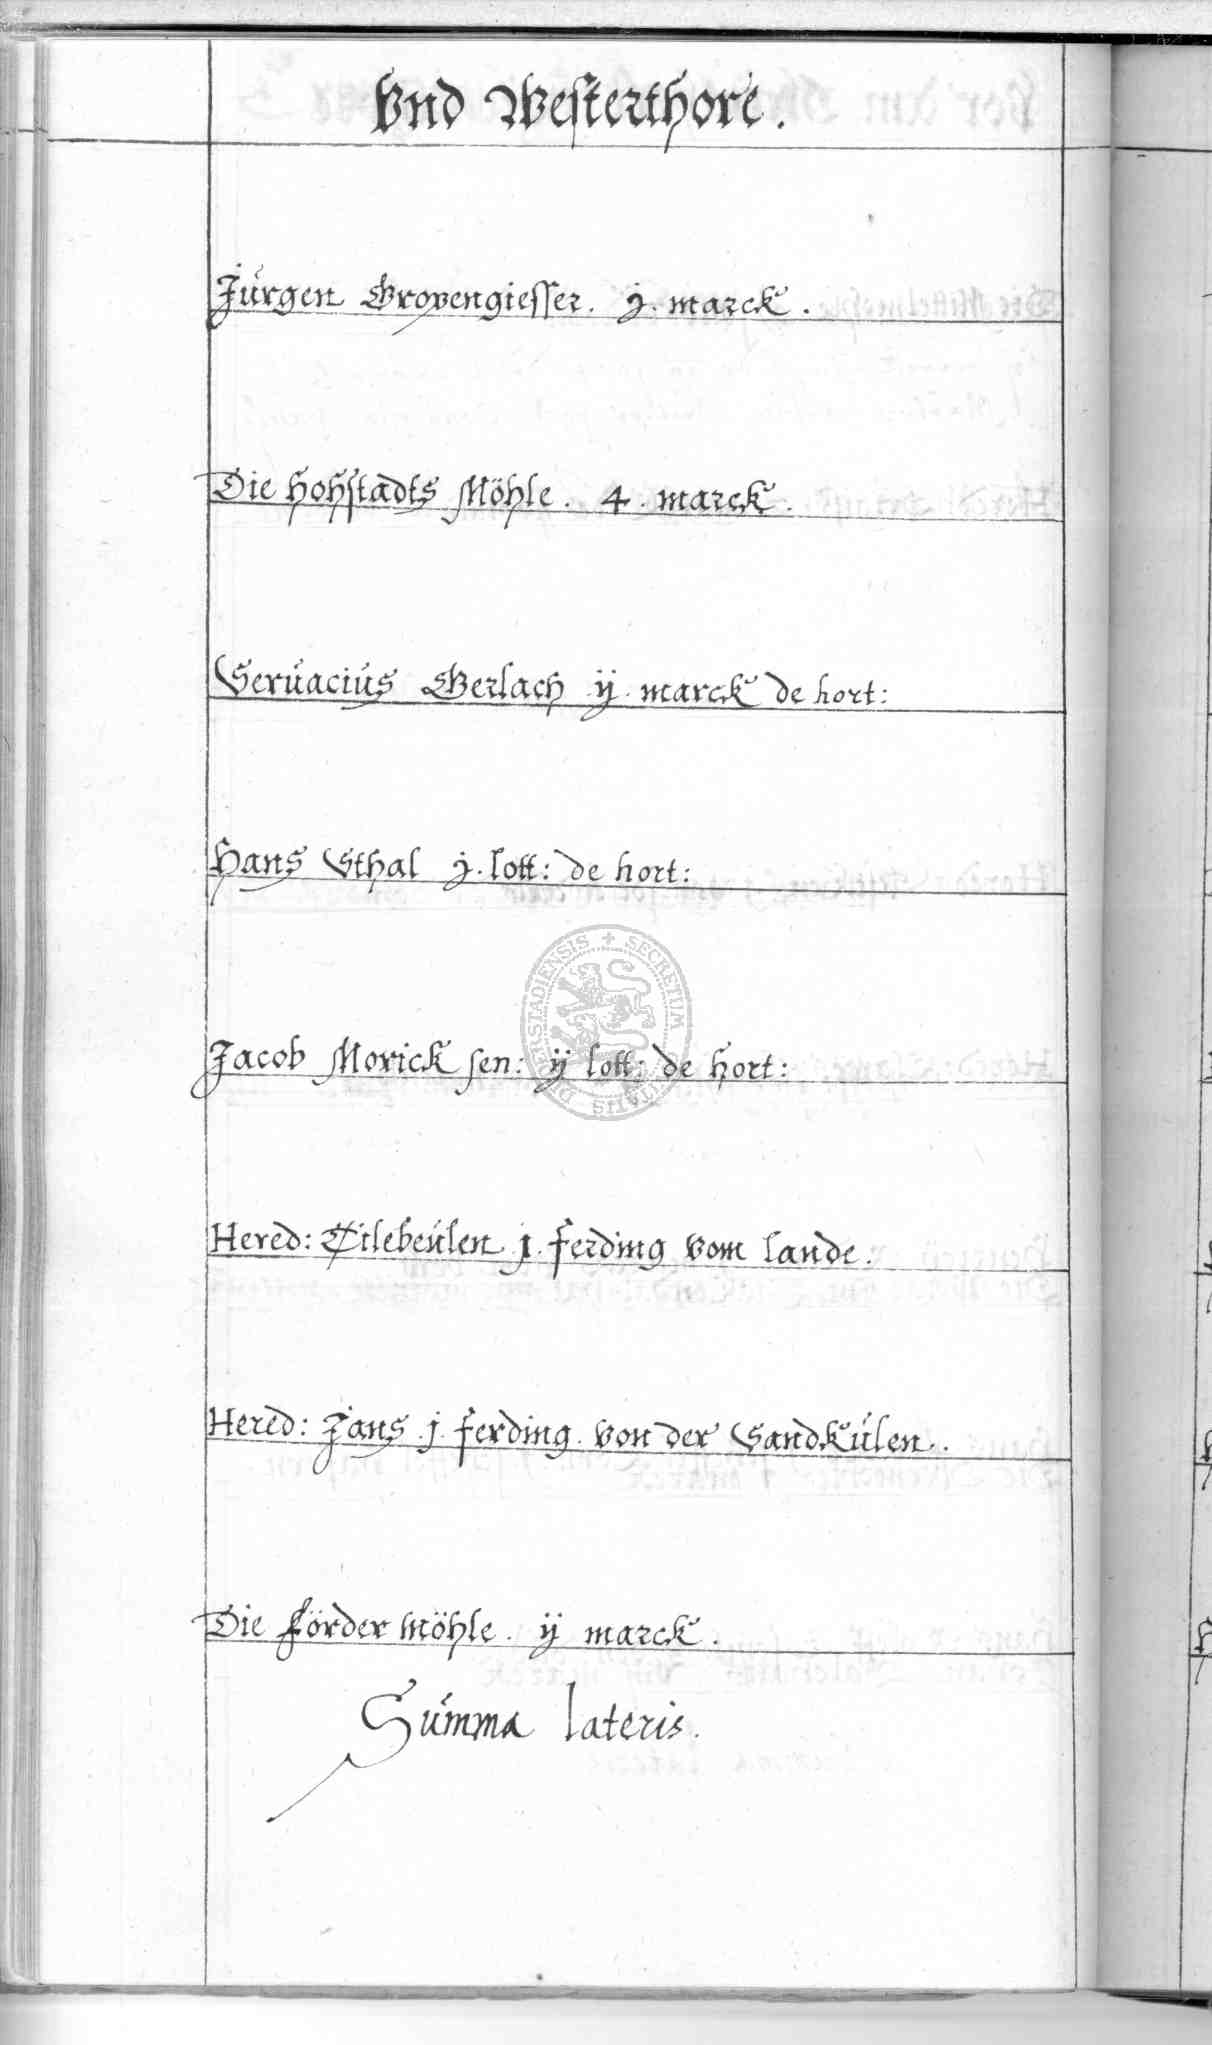 Vnd Westerthore.
Jürgen Gropengiesser. j. marck.
Die Hohstadts Möhle. 4. marck.
Seruacius Gerlach ij. marck de hort:
Hans Sthal j. lott: de hort:
Jacob Morick sen: ij lott: de hort:
Hered: Tilebeulen j. ferding vom lande.
Hered: Jans j. ferding von der Sandkulen.
Die förder möhle. ij marck.
Summa lateris.
SECRETUM
CIVITATIS
DUDERSTADIENSIS